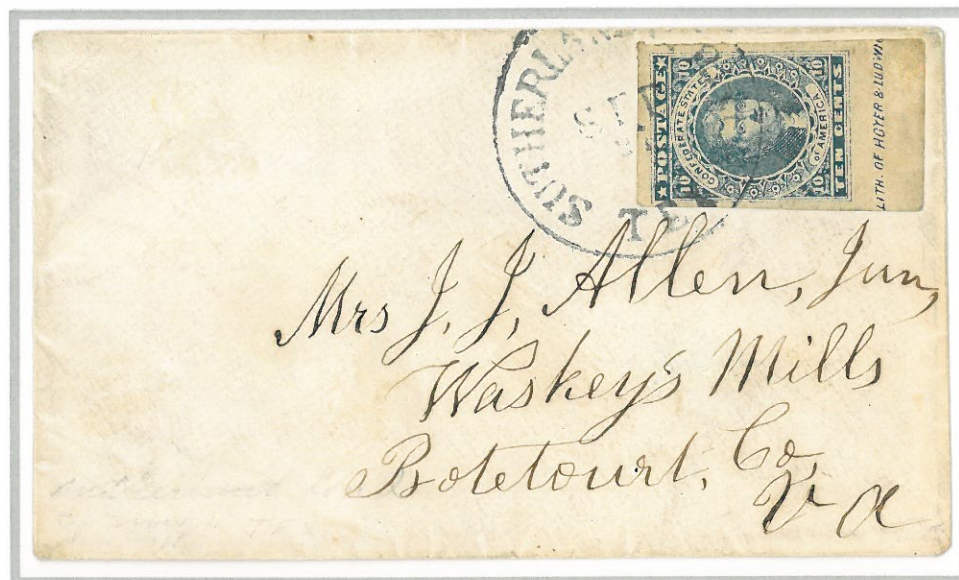 SUTHERLAN
TEX
POSTAGE
10 10
CONFEDERATE STATES
OF AMERICA
10 10
TEN CENTS
LITH. OF HOYER & LUDWIG
Mrs J. J. Allen, Jun,
Waskey's Mills
Botetourt, Co,
Va